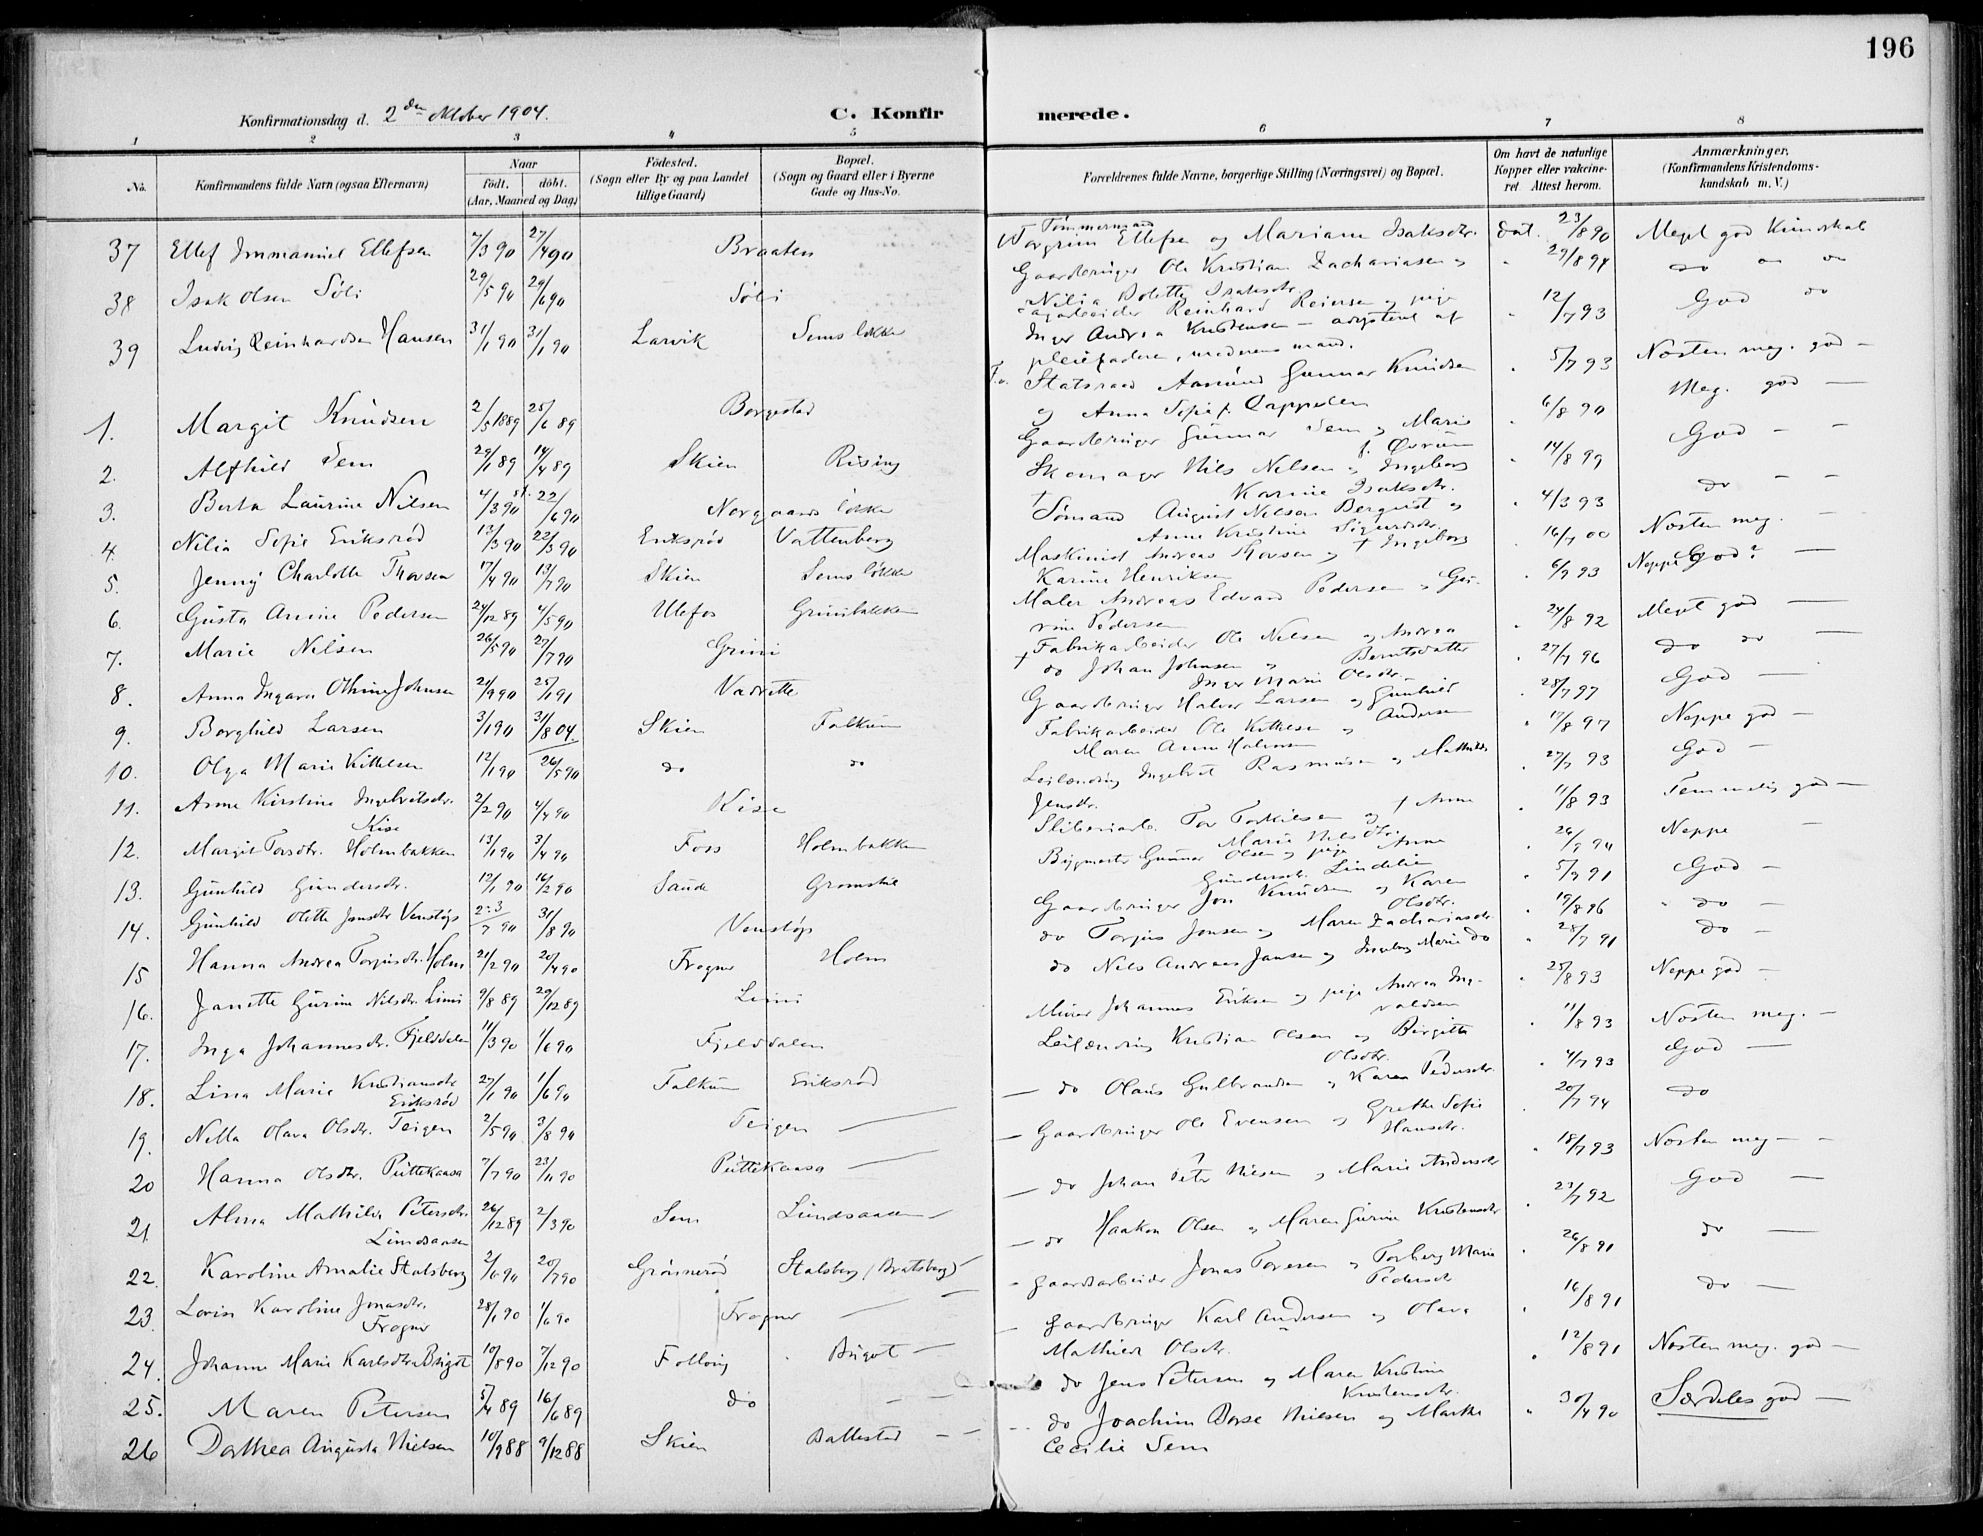 196
Konfirmationsdag d. 2den Oktober 1904.
C. Konfirmerede.
1 2 3 4 5 6 7 8
No.
Konfirmandens fulde Navn (ogsaa Efternavn)
Naar
födt. döbt.
(Aar, Maaned og Dag)
Födested.
(Sogn eller By og paa Landet tillige Gaard)
Bopæl.
(Sogn og Gaard eller i Byerne Gade og Hus-No.
Forældrenes fulde Navne, borgerlige Stilling (Næringsvei) og Bopæl.
Om havt de naturlige Kopper eller vakcineret. Attest herom.
Anmærkninger.
(Konfirmandens Kristendomskundskab m. V.)
37 Ellef Immanuel Ellefsen 7/3 90 27/4 90 Braaten Tømmermand Torgrim Ellefsen og Mariane Isaksdtr. dat. 23/8 90 Meget god Kundskab
38 Isak Olsen Søli 29/5 90 29/6 90 Søli Gaardbruger Ole Kristian Zachariasen og Nilia Bolette Isaksdtr. " 29/8 94 do
39 Ludvig Reinhardsen Hansen 31/1 90 31/1 90 Larvik Semsløkke Reinhard Reiersen og pige Inger Andrea Kristensen – adopteret af pleiefaderen, moderens mand. " 12/7 93 God do
1. Margit Knudsen 2/5 1889 25/6 89 Borgestad F.v. Statsraad Aamund Gunnar Knudsen og Anna Sofie f. Cappelen " 5/7 93 Næsten meg. god –
2. Alfhild Sem 29/1 89 14/4 89 Skien Rising Gaardbruger Gunnar Sem og Marie f. Øvrum " 6/8 90 Meg. god –
3. Berta Laurine Nilsen 4/3 90 22/6 90 Norgaards løkke Skomager Nils Nilsen og Ingeborg Karine Isaksdtr. " 14/8 99 God – –
4. Nilia Sofie Eriksrød 13/3 90 22/3 90 Eriksrød Vattenberg † Sømand August Nelson Berquist og Anne Kristine Sigurdsdtr. " 4/3 93 do – –
5. Jenny Charlotte Thorsen 17/4 90 13/7 90 Skien Sems løkke Maskinist Andreas Thorsen og † Ingeborg Karine Henriksen " 16/7 00 Næsten meg. –
6. Gusta Amine Pedersen 24/12 89 4/5 90 Ulefos Grinibakken Maler Andreas Edvard Pedersen og Gurine Pedersen " 6/9 93 Neppe God? –
7. Marie Nilsen 26/5 90 27/7 90 Grini † Fabrikarbeider Ole Nilsen og Andrea Berntsdatter " 24/8 92 Meget god –
8. Anna Ingara Othine Johnsen 21/9 90 25/1 91 Vadrette do Johan Johnsen og Inger Marie Olsdtr. – " 27/7 96 do do –
9. Borghild Larsen 3/1 90 31/8 04. Skien Falkum Gaardbruger Halvor Larsen og Gunhild Andersen " 28/7 97 God –
10. Olga Marie Kittelsen 12/1 90 26/5 90 do do Fabrikarbeider Ole Kittelsen og Maren Anne Halvorsen " 17/8 97 Neppe god –
11. Anne Kirstine Ingebretsdtr. Kise 2/2 90 4/4 90 Kise Leilænding Ingebret Rasmusen og Mathilde Jensdtr. " 27/7 93 God –
12. Margit Torsdtr. Holmbakken 13/1 90 3/4 90 Foss Holmbakken Sliberiarb. Tor Torkilsen og † Anne Marie Nilsdtr. " 11/8 93 Temmelig god –
13. Gunhild Gundersdtr. 12/1 90 16/2 90 Saude Gromstul Bygmester Gunnar Olsen og pige Anne Gundersdtr. Lindelien " 26/9 90 Neppe –
14. Gunhild Olette Jonsdtr Venstøp 23/7 90 31/8 90 Venstøp Gaardbruger Jon Knudsen og Karen Olsdtr. " 5/9 91 God –
15 Hanna Andrea Torjusdtr. Holm 21/2 90 20/4 90 Frogner Holm do Torjus Jonsen og Maren Zachariasdtr " 19/8 96 do –
16. Janette Gurine Nilsdtr. Limi 9/8 89 29/12 89 Limi do Nils Andreas Jansen og Ingeborg Marie do " 28/7 91 do –
17. Inga Johannesdtr. Fjelddalen 11/3 90 1/6 90 Fjelddalen Murer Johannes Eriksen og pige Andrea Ingvaldsen " 25/8 93 Neppe god –
18. Lina Marie Kristiansdtr Eriksrød 27/1 90 1/6 90 Falkum Eriksrød Leilænding Kristian Olsen og Birgitte Olsdtr. " 11/8 93 Næsten meg. –
19. Nella Olava Olsdtr. Teigen 2/5 90 3/8 90 Teigen – do Olaus Gulbrandsen og Karen Pedersdtr. " 4/7 93 God –
20 Hanna Olsdtr. Puttekaasa 7/7 90 23/11 90 Puttekaasa – Gaardbruger Ole Evensen og Grethe Sofie Hansdtr. " 20/7 94 do
21. Alma Mathilde Petersdtr. Lundsaasen 26/12 89 2/3 90 Sem Lundsaasen – do Johan Peter Nilsen og Marie Andersdtr " 18/7 93 Næsten meg – –
22. Karoline Amalie Stalsberg 2/6 90 20/7 90 Grøsnerød Stalsberg (Bratsberg) – do Haakon Olsen og Maren Gurine Kristensdtr " 23/7 92 God –
23. Lovise Karoline Jonasdtr. Frogner 28/1 90 1/6 90 Frogner – Gaardsarbeider Jonas Toresen og Torberg Marie Pedersdtr " 26/8 91 do –
24. Johanne Marie Karlsdtr Brigot 10/8 90 7/12 90 Follaug Brigot – Gaardbruger Karl Andersen og Olava Mathilde Olsdtr. " 16/8 91 do –
25. Maren Petersen 5/4 89 16/6 89 do – do Jens Petersen og Maren Kristine Kristensdtr. " 12/8 91 Næsten meg. god –
26 Dorthea Augusta Nielsen 10/9 88 9/12 88 Skien Ballestad – – do Joachim Borse Nielsen og Marthe Cecilie Sem " 30/4 90 Særdeles god –